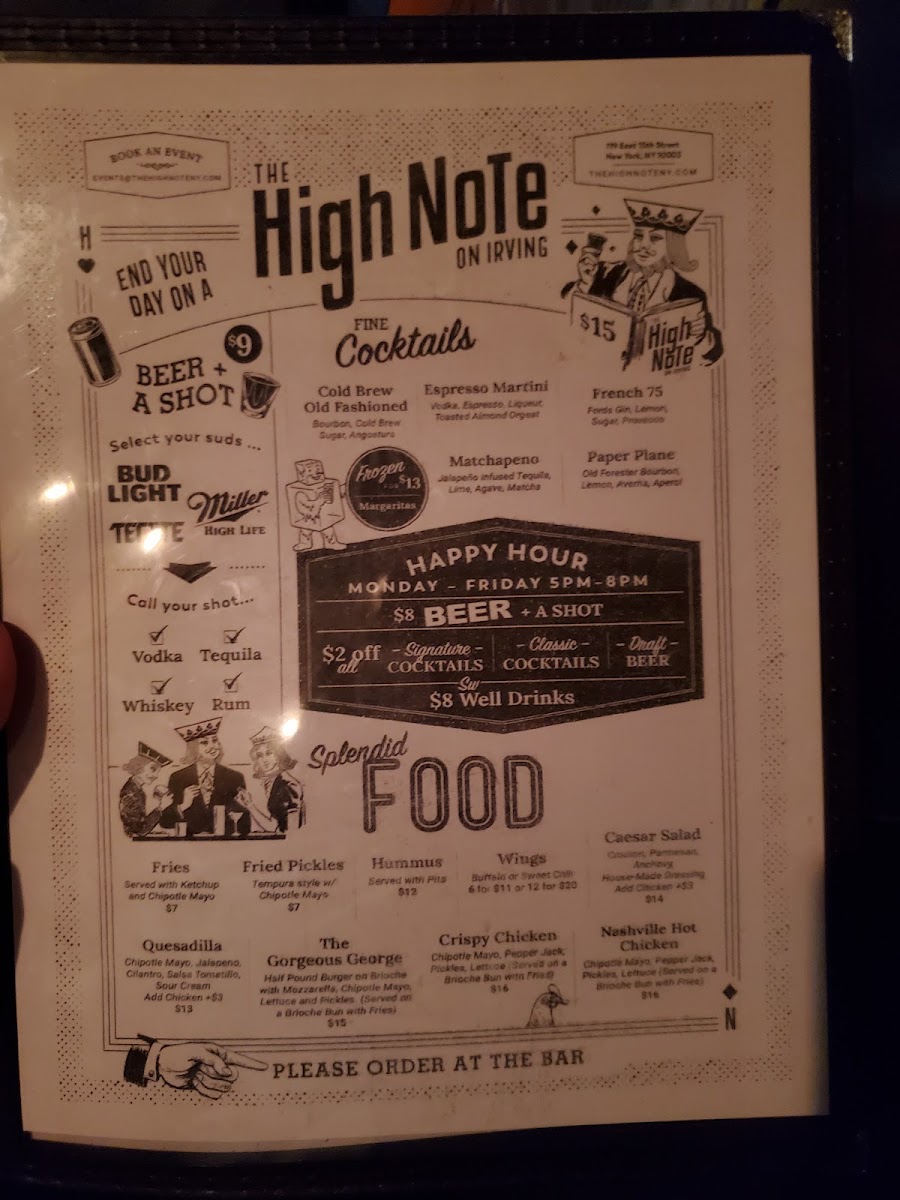 BOOK AN EVENT
EVENTS@THEHIGHNOTENY.COM
119 East 15th Street
New York, NY 10003
THEHIGHNOTENY.COM
THE
High NoTe
ON IRVING
H
END YOUR
DAY ON A
$9
BEER +
A SHOT
Select your suds ...
BUD
LIGHT
Miller
HIGH LIFE
TECATE
Call your shot...
Vodka
Tequila
Whiskey
Rum
FINE
Cocktails
$15
High
NoTe
ON IRVING
Cold Brew
Old Fashioned
Bourbon, Cold Brew
Sugar, Angostura
Espresso Martini
Vodka, Espresso, Liqueur,
Toasted Almond Orgeat
French 75
Fords Gin, Lemon,
Sugar, Prosecco
Frozen
FOR $13
Margaritas
Matchapeno
Jalapeño Infused Tequila,
Lime, Agave, Matcha
Paper Plane
Old Forester Bourbon,
Lemon, Averna, Aperol
HAPPY HOUR
MONDAY - FRIDAY 5PM-8PM
$8 BEER + A SHOT
$2 off
all
- Signature -
COCKTAILS
- Classic -
COCKTAILS
- Draft -
BEER
$8 Well Drinks
Splendid
FOOD
Fries
Served with Ketchup
and Chipotle Mayo
$7
Fried Pickles
Tempura style w/
Chipotle Mayo
$7
Hummus
Served with Pita
$12
Wings
Buffalo or Sweet Chili
6 for $11 or 12 for $20
Caesar Salad
Crouton, Parmesan,
Anchovy
House-Made Dressing
Add Chicken +$3
$14
Quesadilla
Chipotle Mayo, Jalapeno,
Cilantro, Salsa Tomatillo,
Sour Cream
Add Chicken +$3
$13
The
Gorgeous George
Half Pound Burger on Brioche
with Mozzarella, Chipotle Mayo,
Lettuce and Pickles. (Served on
a Brioche Bun with Fries)
$15
Crispy Chicken
Chipotle Mayo, Pepper Jack,
Pickles, Lettuce (Served on a
Brioche Bun with Fries)
$16
Nashville Hot
Chicken
Chipotle Mayo, Pepper Jack,
Pickles, Lettuce (Served on a
Brioche Bun with Fries)
$16
N
PLEASE ORDER AT THE BAR